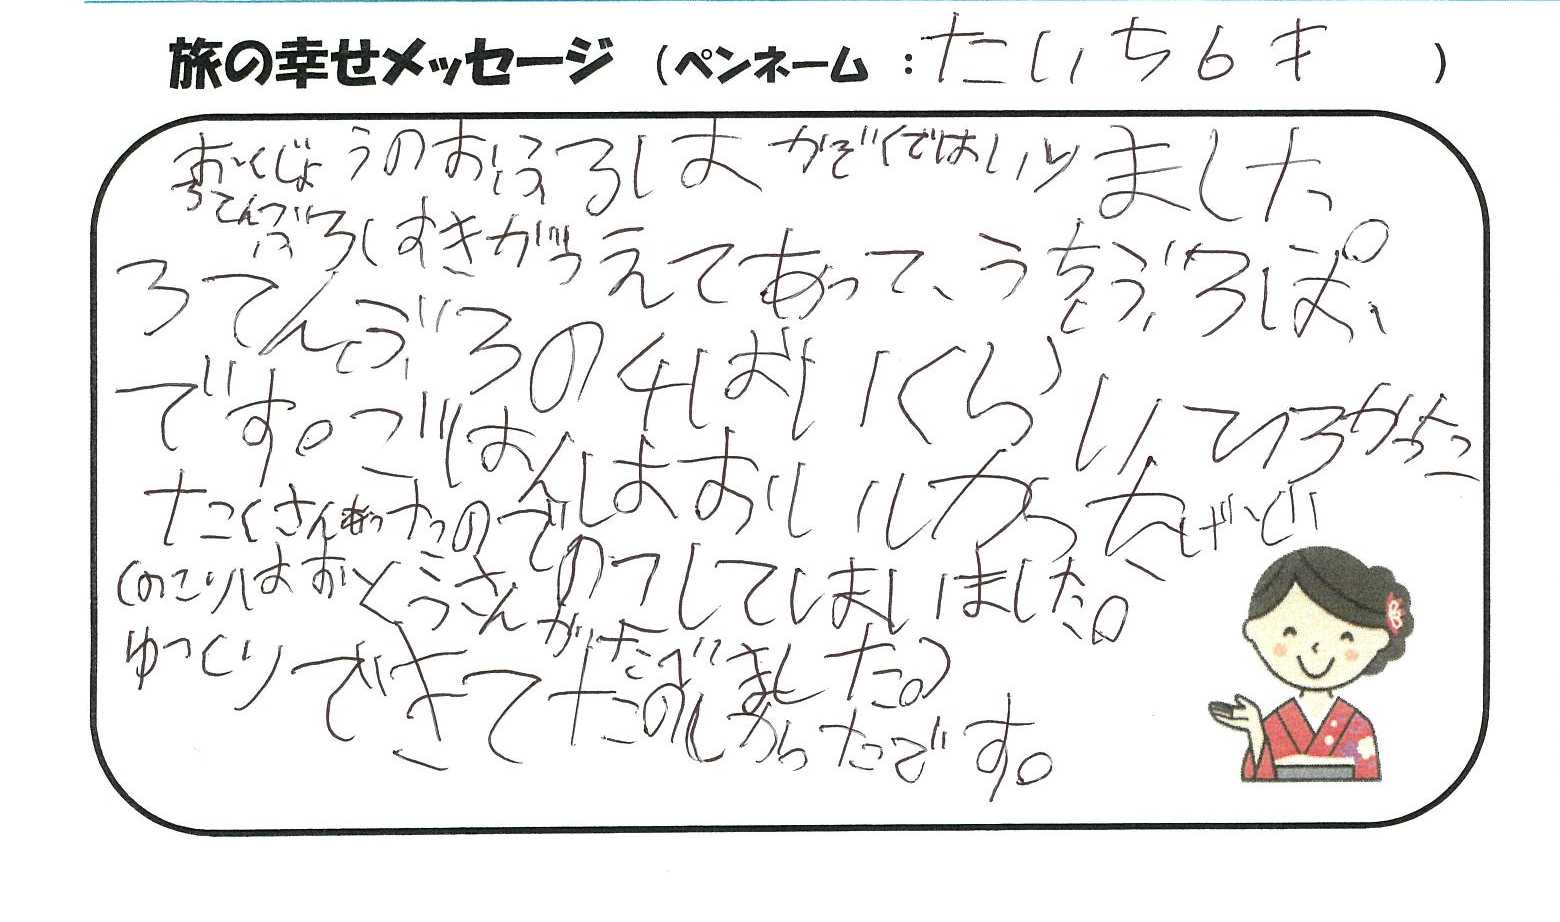 旅の幸せメッセージ (ペンネーム : たいち6才 )
おくじょうのおふろは かぞくではいりました。
ろてんぶろはすきがうえてあって、うちぶろは、
ろてんぶろの4ばいくらいでひろかった
です。ごはんはおいしかったけど
たくさんあったのでのこしてしまいました。
(のこりはおとうさんがたべました。)
ゆっくりできてたのしかったです。